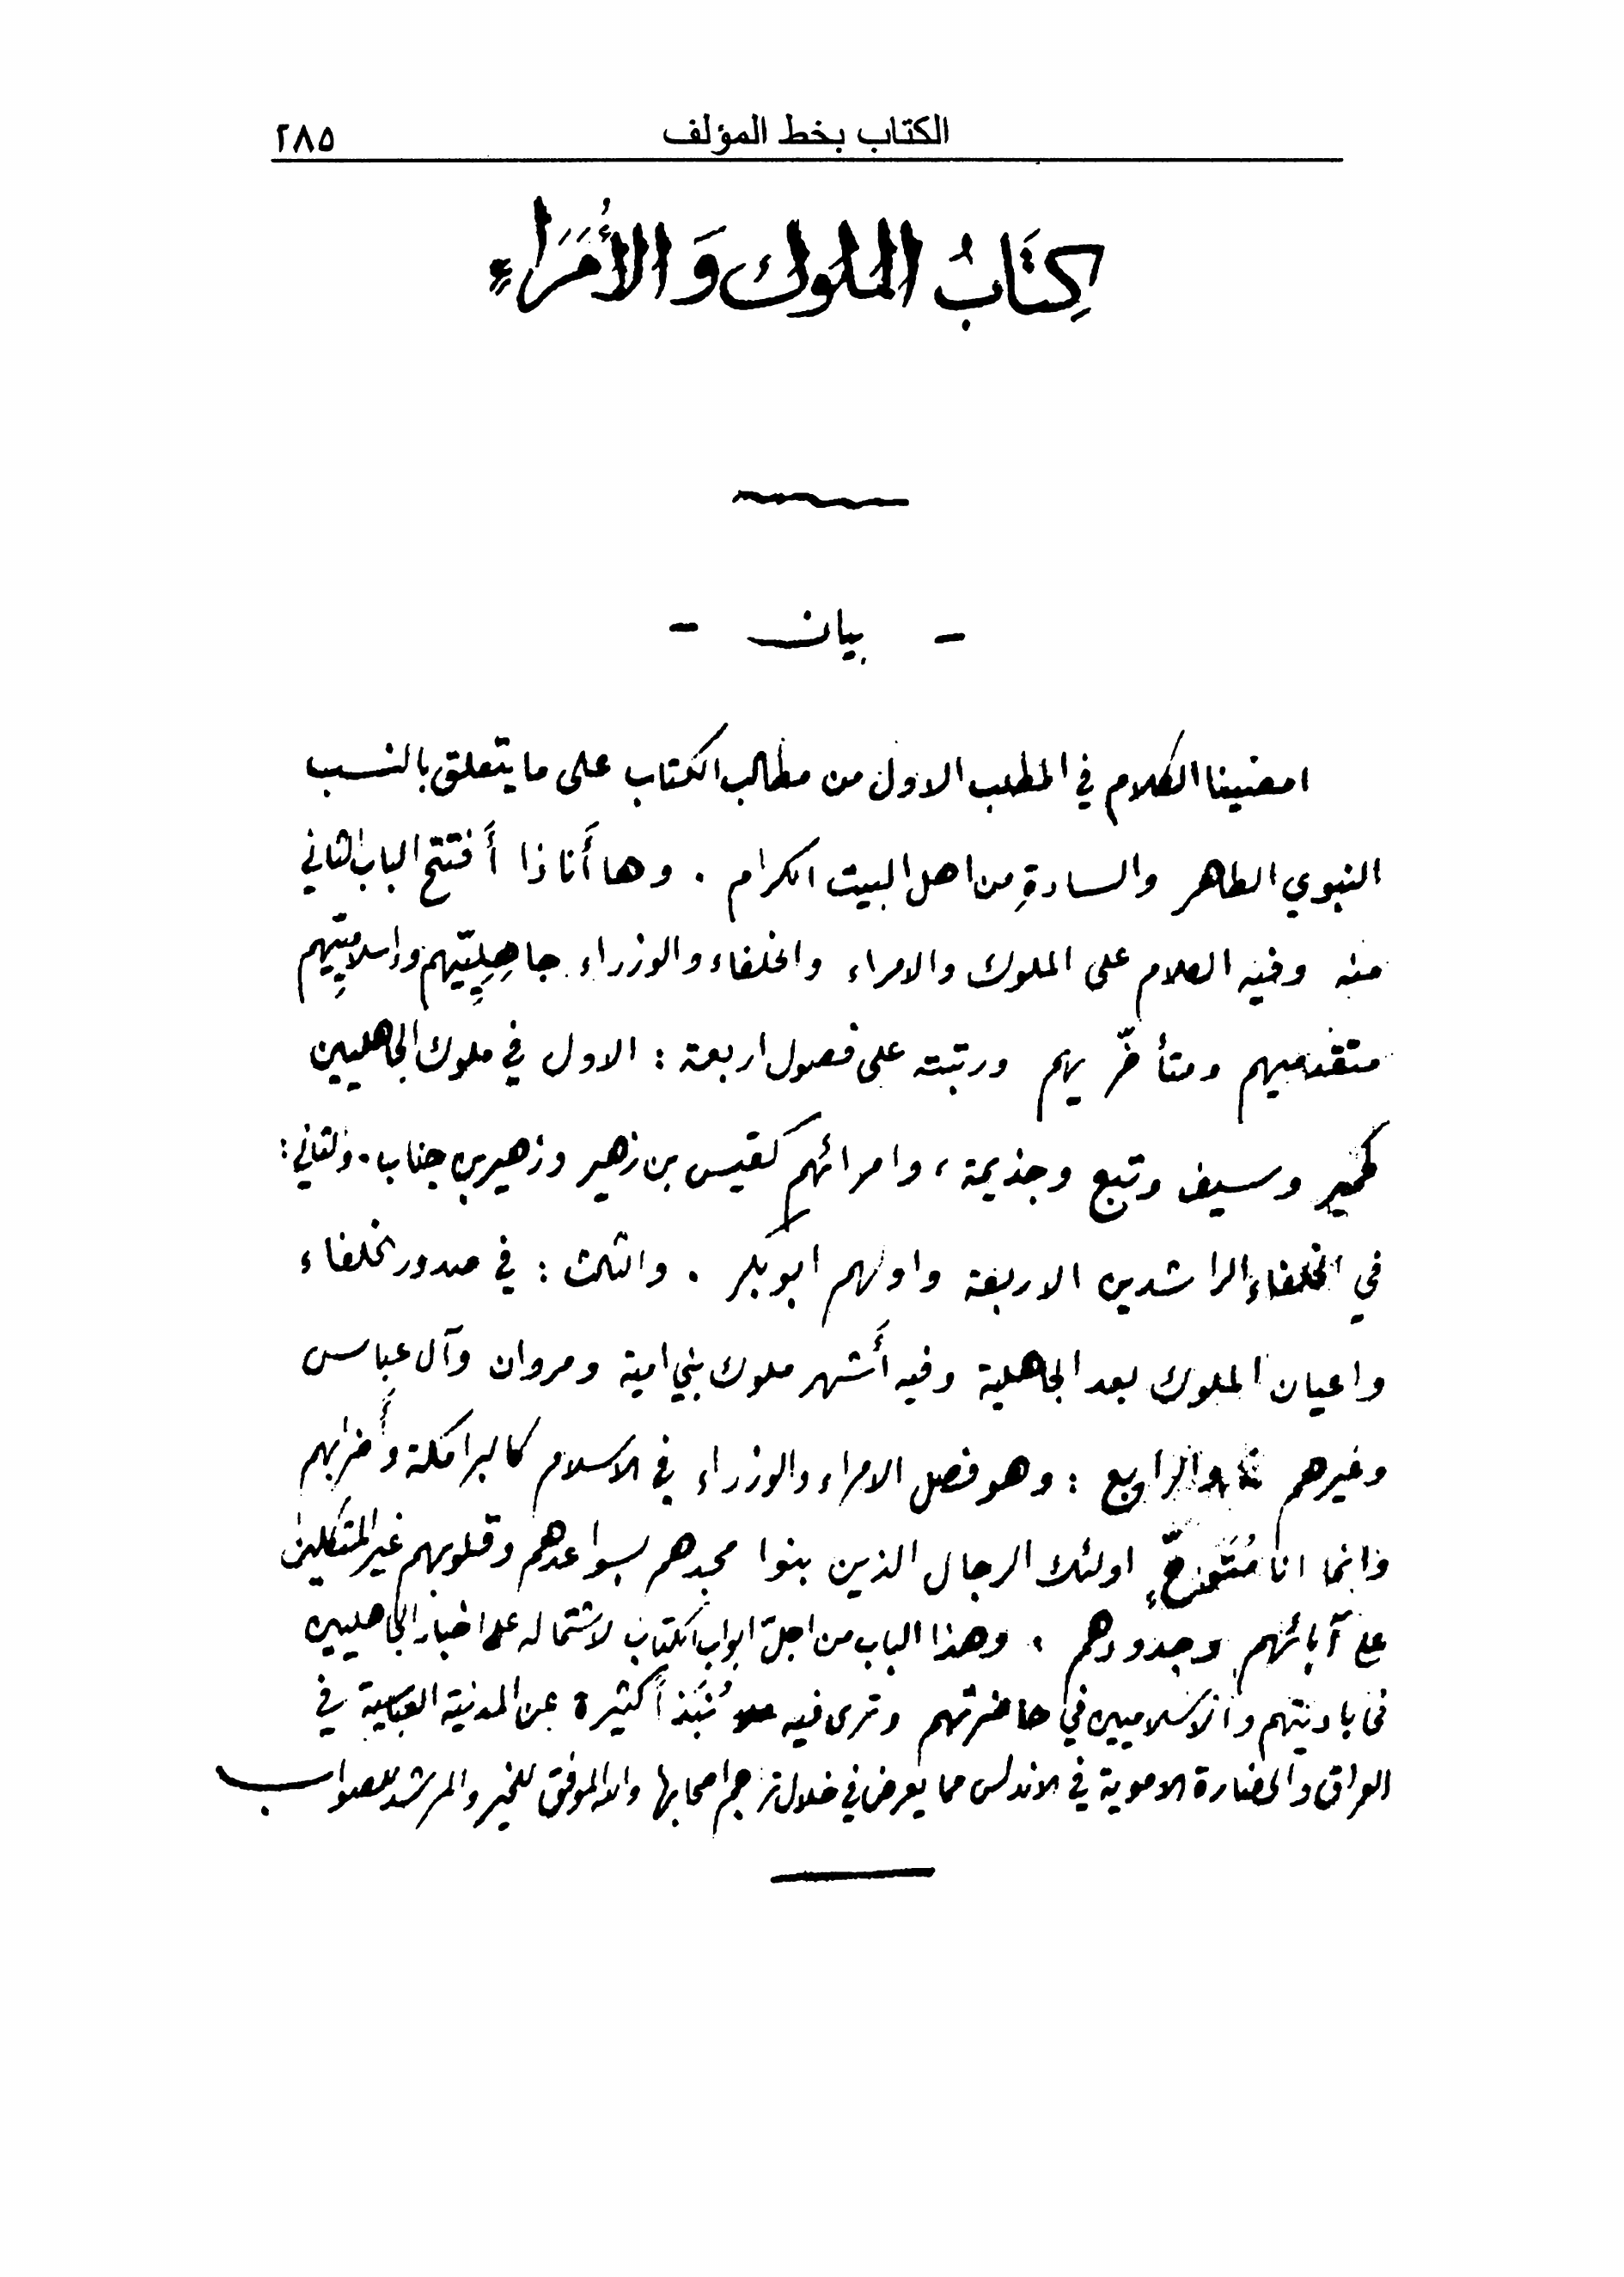 الكتاب بخط المؤلف ٢٨٥
كِتَابُ الملوك وَالأُمَرَاءِ
- بيان -
امضينا الكلام في المطلب الاول من مطالب الكتاب على ما يتعلق بالنسب
النبوي الطاهر والسادةِ من اهل البيت الكرام . وها أَنا ذا أَفتتح الباب الثاني
منه وفيه الكلام على الملوك والامراء والخلفاء والوزراء جاهِلِيِّيهم وإسلامِيِّيهم
متقدميهم ومتأخّريهم ورتبته على فصول اربعة : الاول في ملوك الجاهليين
كحمير وسيف وتبع وجذيمة ، وامرائهم كقيس بن زهير وزهير بن جناب . والثاني :
في الخلفاء الراشدين الاربعة واولهم ابو بكر . والثالث : في صدور الخلفاء
واعيان الملوك بعد الجاهلية وفيه أَشهر ملوك بني امية ومروان وآل عباس
وغيرهم والرابع : وهو فصل الامراء والوزراء في الاسلام كالبرامكة وأَضرابهم
وانما انا اولئك الرجال الذين بنوا مجدهم بسواعدهم وقلوبهم غير المتكلين
على آبائهم وجدودهم . وهذا الباب من اجلّ ابواب الكتاب لاشتماله على اخبار الجاهليين
في باديتهم والاسلاميين في حاضرتهم وترى فيه نُبَذاً كثيرة عن المدنية العباسية في
العراق والحضارة الاموية في الاندلس مما يعرض في خلال تراجم اصحابها والله الموفق للخير والمرشد للصواب